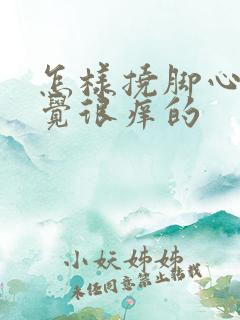 怎样挠脚心
觉很痒的
小妖姊姊
未经同意禁止转载